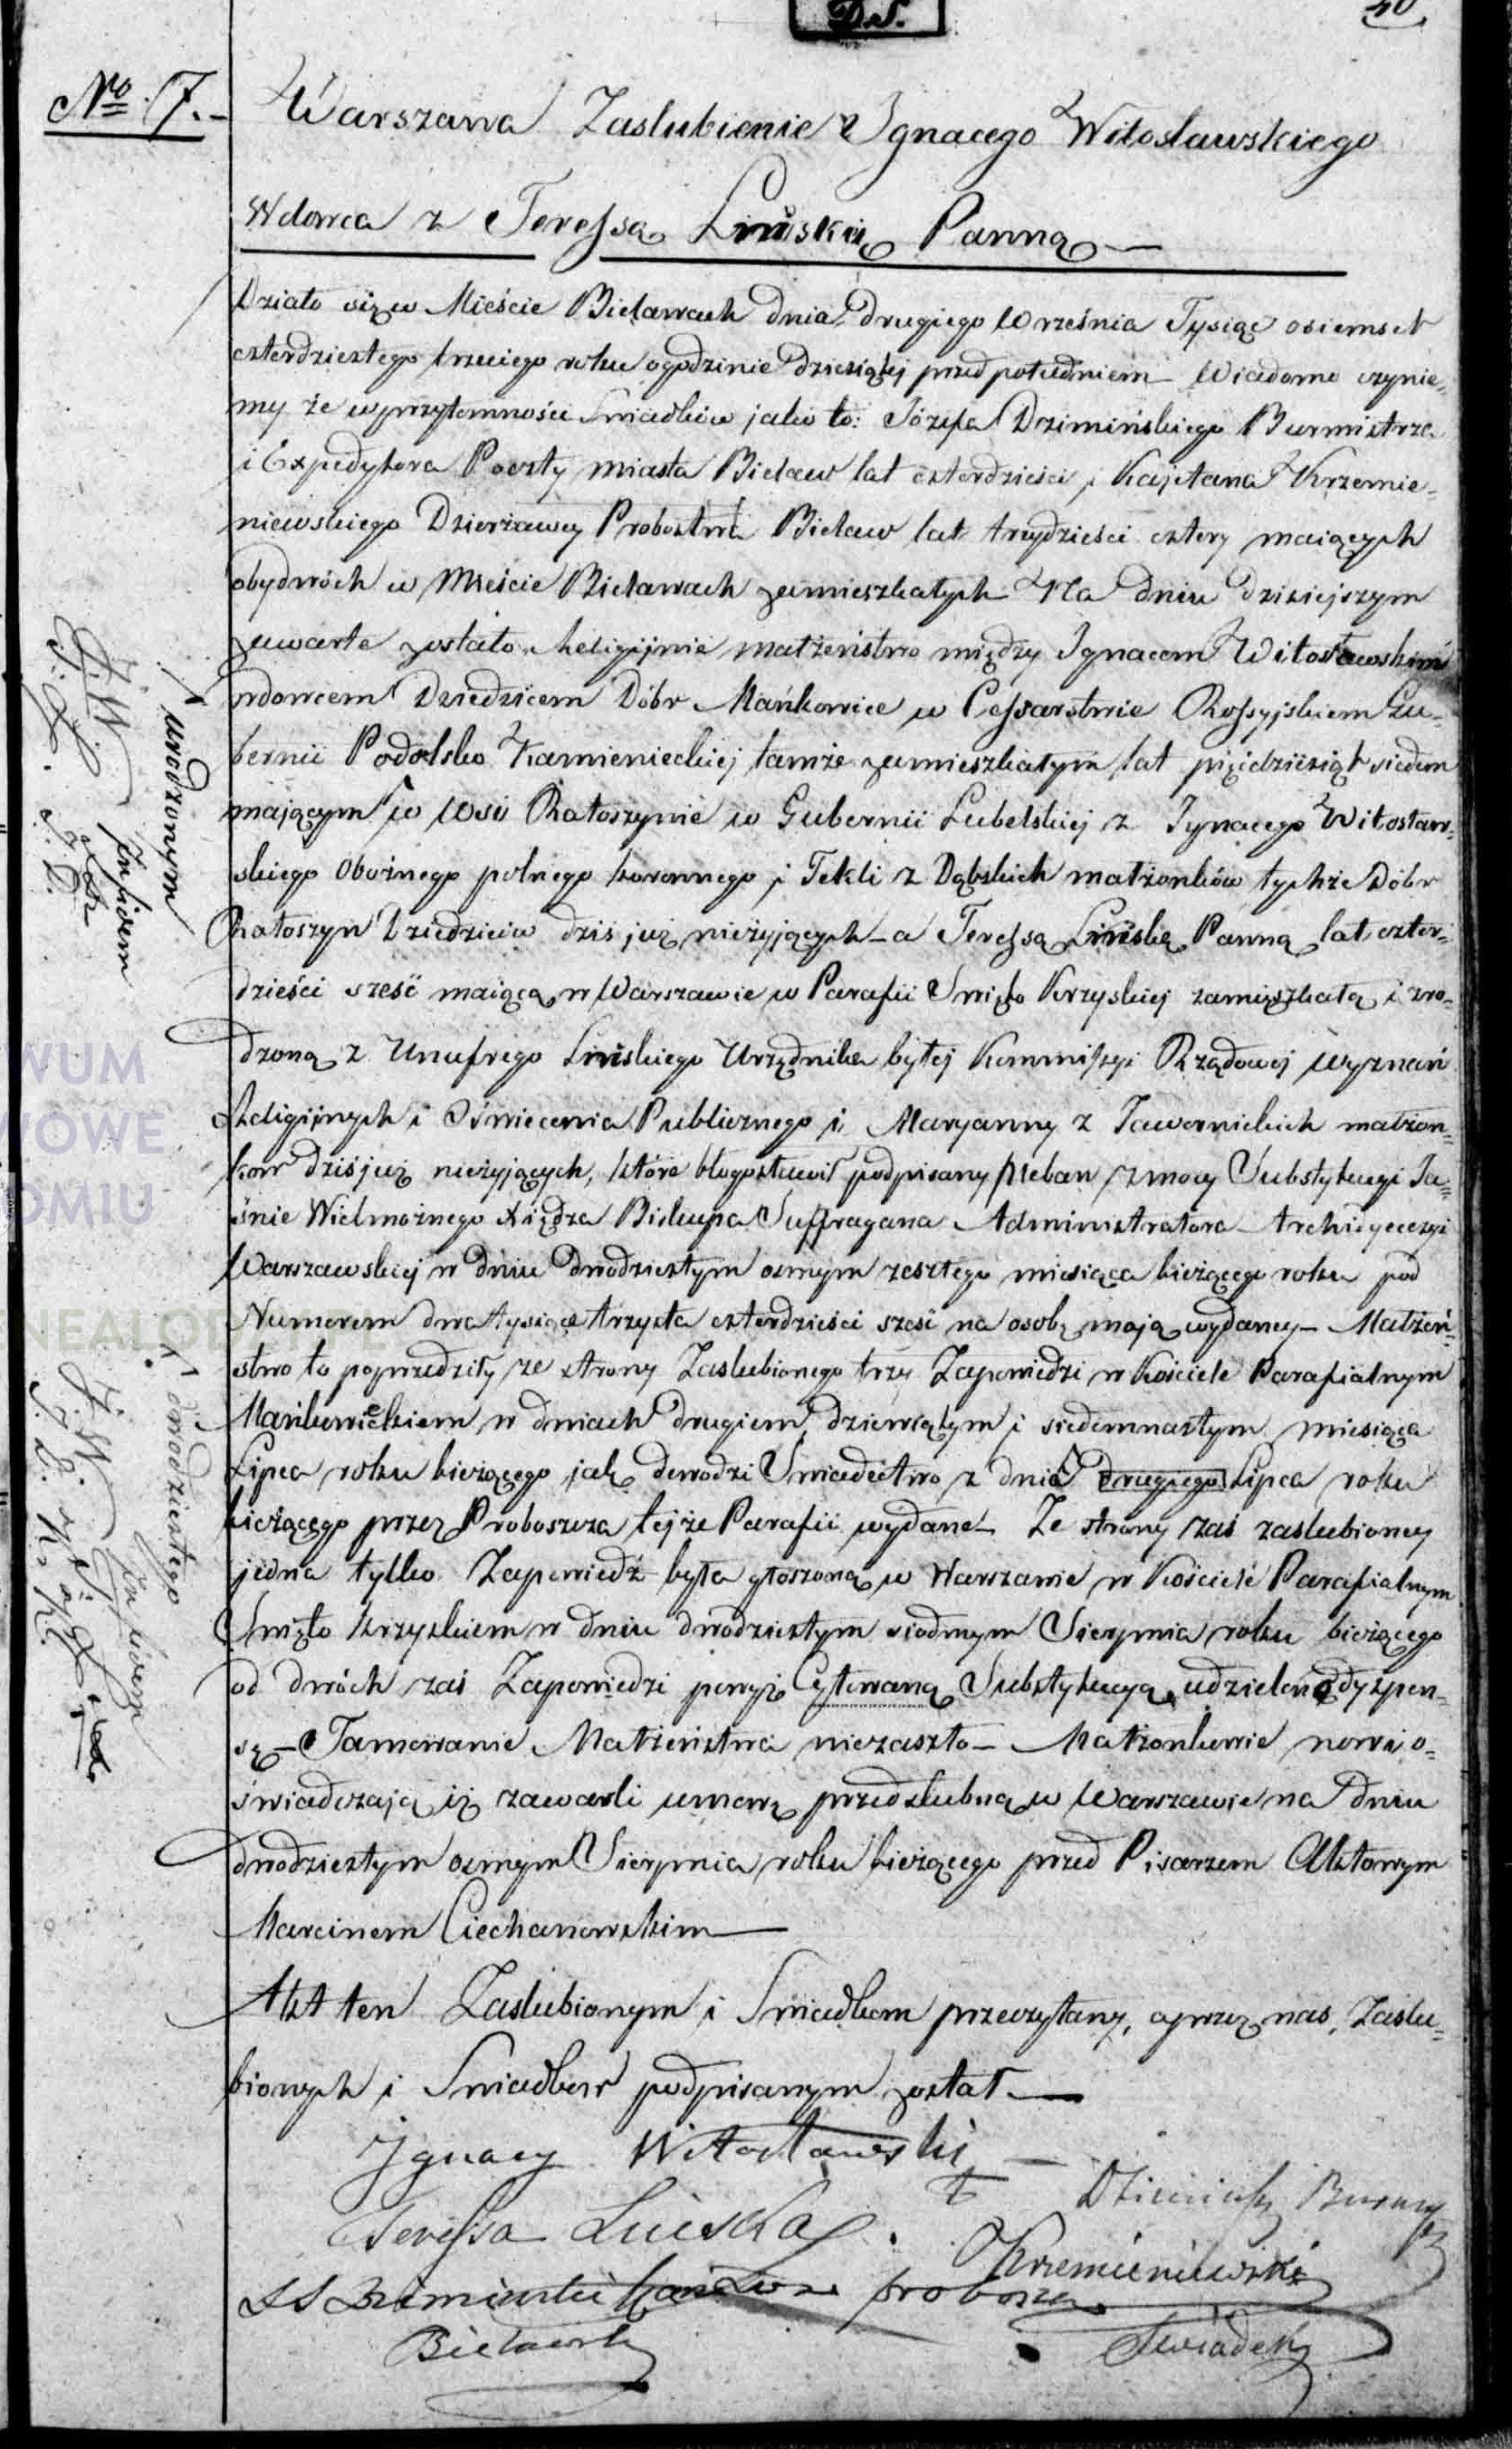 D.S.
40
No 17.
Warszawa Zaslubienie Ignacego Witosławskiego
Wdowca z Teressą Linską Panną
Działo się w Mieście Bielawach dnia drugiego Września Tysiąc osiemset
czterdziestego trzeciego roku o godzinie dziesiątej przed południem Wiadomo czynie-
my że w przytomności Swiadków jako to: Józefa Dzimińskiego Burmistrza
i Expedytora Poczty miasta Bielaw lat czterdzieści, i Kajetana Krzemie-
niewskiego Dzierżawcy Probostwa Bielaw lat trzydzieści cztery maiących
obydwóch w Mieście Bielawach zamieszkałych Na dniu dzisiejszym
zawarte zostało Religijnie małżeństwo między Ignacem Witosławskim
wdowcem Dziedzicem Dóbr Mańkowice w Cessarstwie Rossyjskiem Gu-
bernii Podolsko Kamienieckiej tamże zamieszkałym lat pięćdziesiąt siedem
mającym w Wsi Ratoszynie w Gubernii Lubelskiej z Ignacego Witosław-
skiego Oboźnego polnego koronnego i Tekli z Dąbskich małżonków tychże Dóbr
Ratoszyn Dziedziców dziś już nieżyjących a Teressą Linską Panną lat czter-
dzieści sześć maiącą w Warszawie w Parafii Swięto Krzyskiej zamięszkałą i zro-
dzoną z Unufrego Linskiego Urzędnika byłej Kommissyi Rządowej Wyznań
Religijnych i Oświecenia Publicznego i Maryanny z Jawornickich małżon-
ków dziś już nieżyjących, które błogosławił podpisany Pleban z mocy Substytucyi Ja-
śnie Wielmożnego Xiędza Biskupa Suffragana Administratora Archidyecezyi
Warszawskiej w dniu dwudziestym osmym zeszłego miesiąca bieżącego roku pod
Numerem dwa tysiące trzysta czterdzieści sześć na osobę moją wydaney Małżeń-
stwo to poprzedziły ze strony Zaslubionego trzy Zapowiedzi w Kościele Parafialnym
Mańkowieckiem w dniach drugiem, dziewiątym i siedemnastym miesiąca
Lipca roku bieżącego jak dowodzi Swiadectwo z dnia drugiego Lipca roku
bieżącego przez Proboszcza tejże Parafii wydane Ze strony zaś zaslubioney
jedna tylko Zapowiedź była głoszona w Warszawie w Kościele Parafialnym
Swięto Krzyskiem w dniu dwudziestym siodmym Sierpnia roku bieżącego
od dwóch zaś Zapowiedzi powyż Cytowaną Substytucyą udzieloną dyspen-
są Tamowanie Małżeństwa niezaszło Małżonkowie nowi o-
świadczają iż zawarli umowę przedslubną w Warszawie na dniu
dwudziestym osmym Sierpnia roku bieżącego przed Pisarzem Aktowym
Marcinem Ciechanowskim
Akt ten Zaslubionym i Swiadkom przeczytany, a przez nas, Zaslu-
bionych i Swiadków podpisanym został
Ignacy Witosławski
Teressa Linska
Krzemieniewski
proboszcz
Bielawski
Swiadek
urodzonym
J. W.
T. L.
J. D.
dwudziestego
J. W.
T. L.
J. D.
K. K.
WUM
WOWE
OMIU
NEALODZY.PL